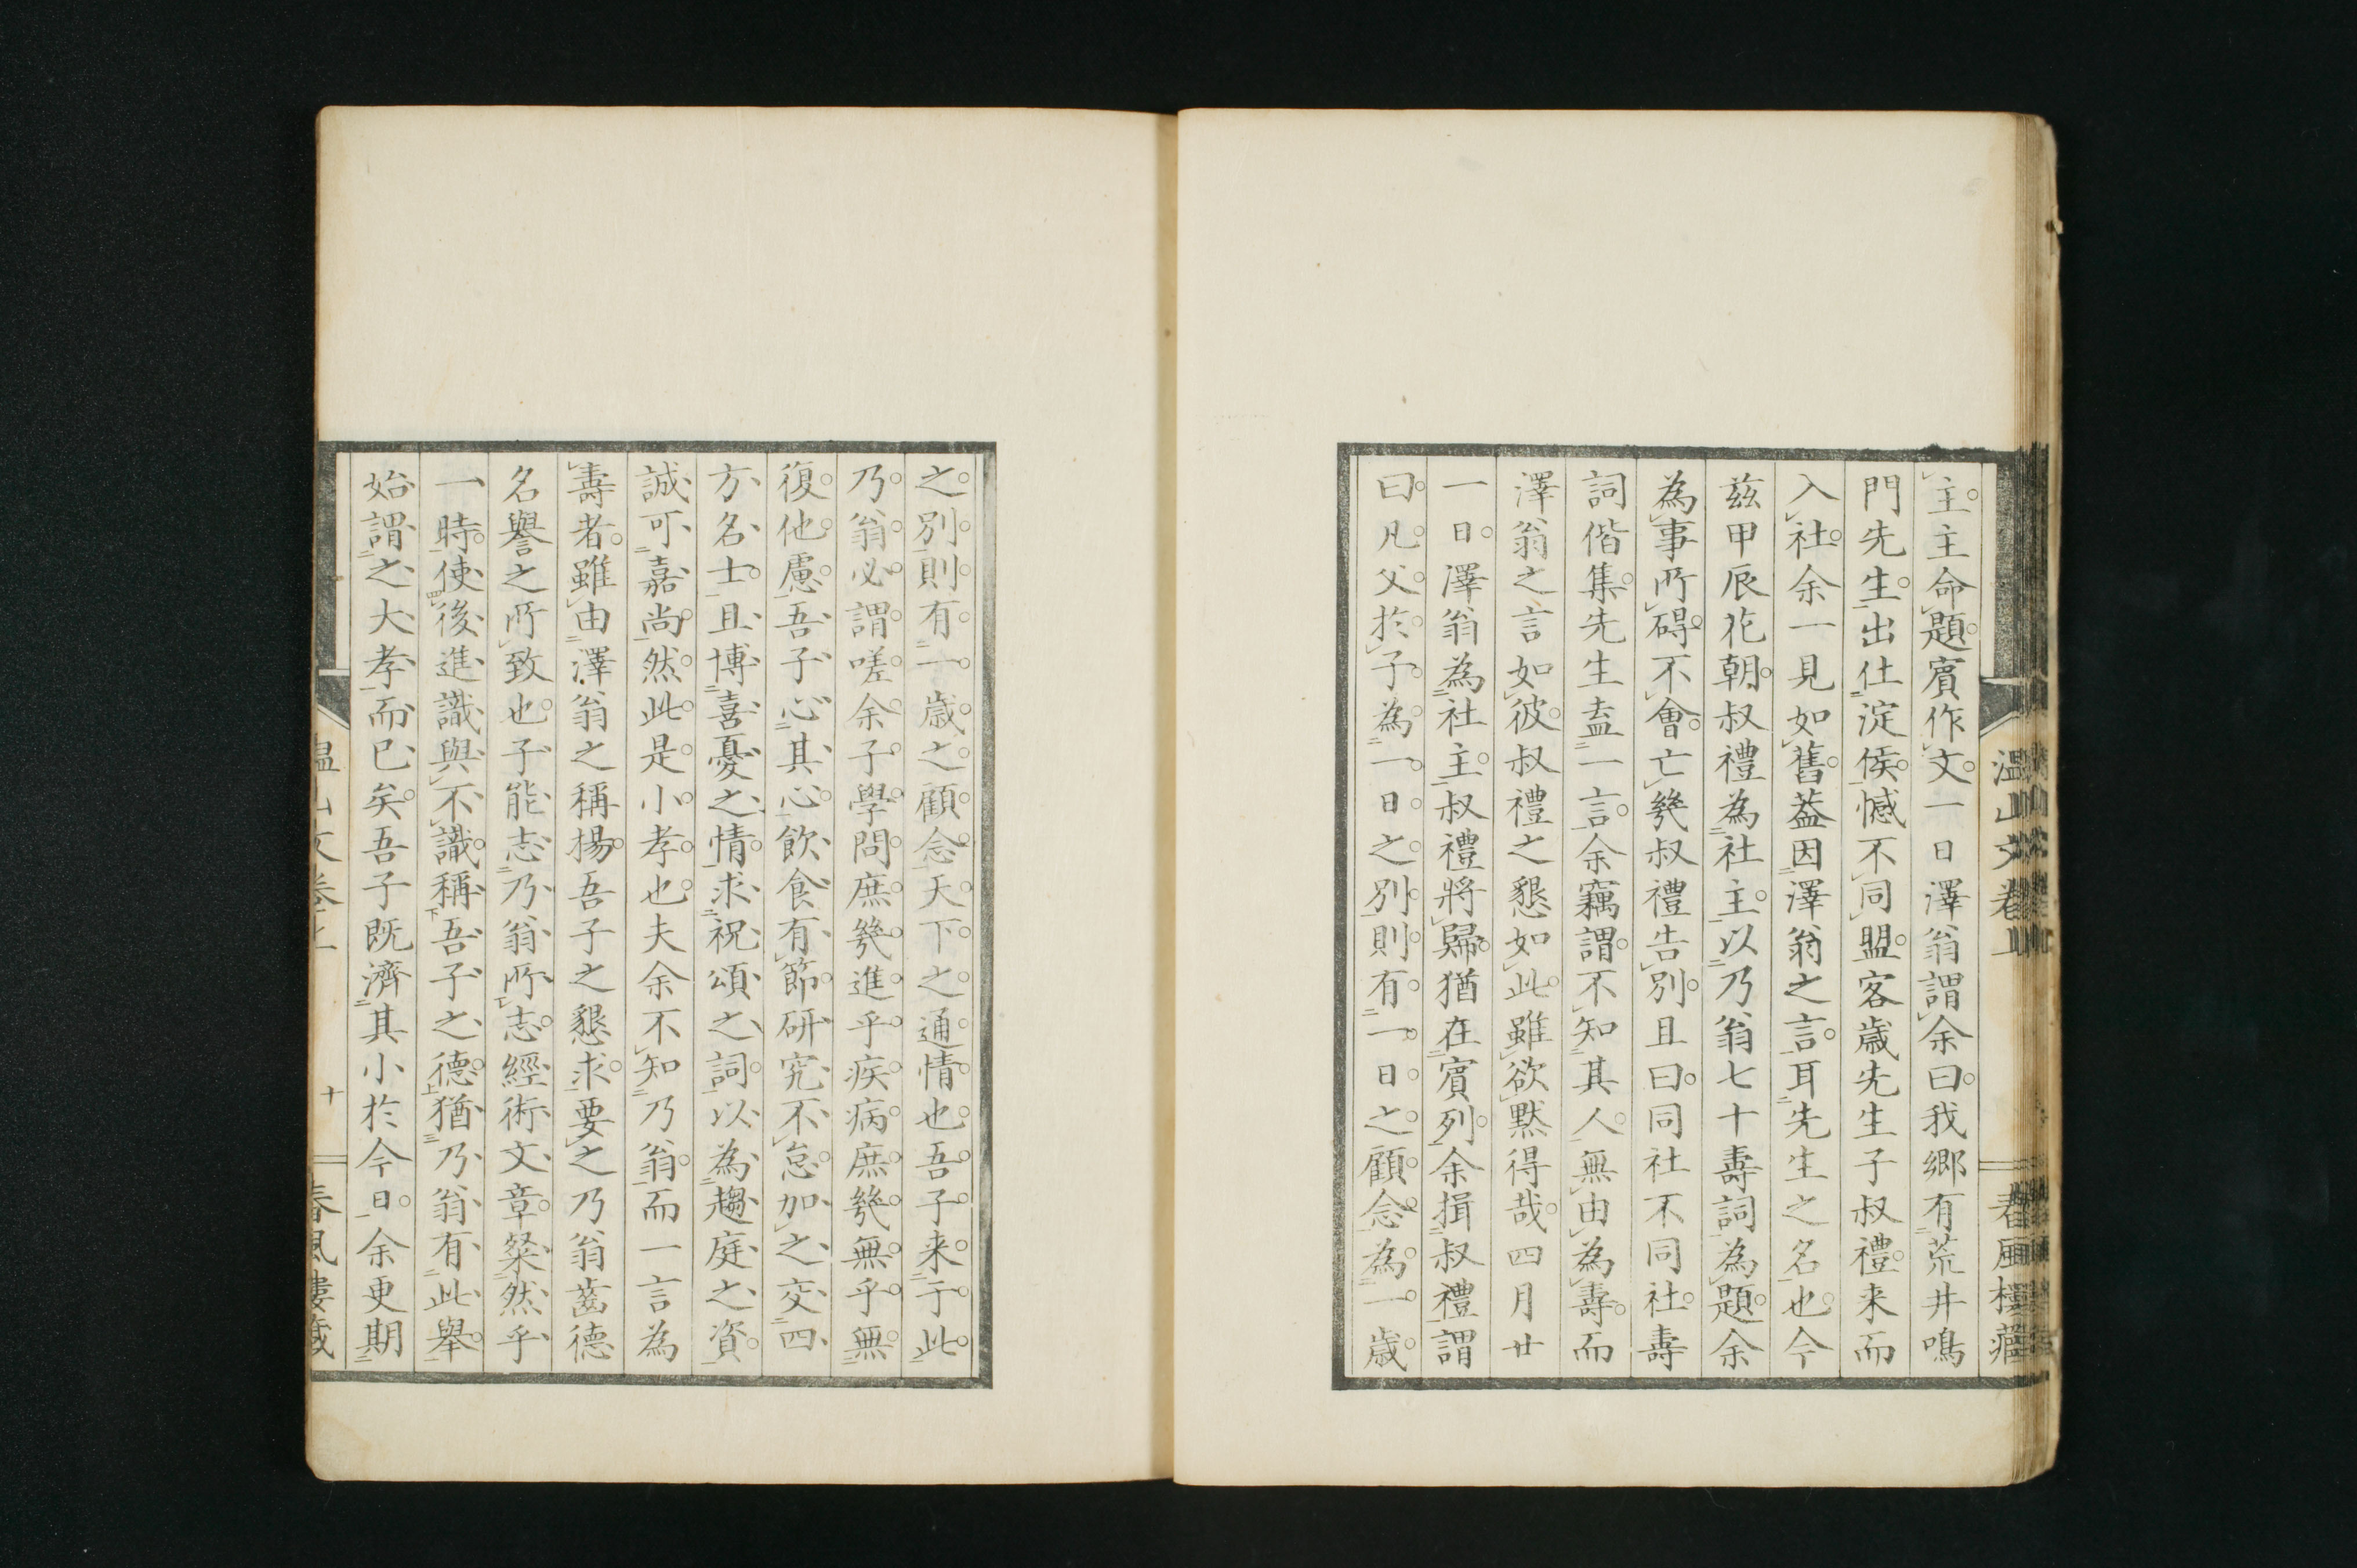 主主命題賓作文一日澤翁謂余曰我鄉有荒井鳴
門先生出仕淀侯憾不同盟客歲先生子叔禮来而
入社余一見如舊蓋因澤翁之言耳先生之名也今
茲甲辰花朝叔禮為社主以乃翁七十壽詞為題余
為事所碍不會亡幾叔禮告別且曰同社不同社壽
詞偕集先生盍一言余竊謂不知其人無由為壽而
澤翁之言如彼叔禮之懇如此雖欲默得哉四月廿
一日澤翁為社主叔禮將歸猶在賓列余揖叔禮謂
曰凡父於子為一日之別則有一日之顧念為一歲
溫山文卷上
春風樓藏
之別則有一歲之顧念天下之通情也吾子来于此
乃翁必謂嗟余子學問庶幾進乎疾病庶幾無乎無
復他慮吾子心其心飲食有節研究不怠加之交四
方名士且博喜憂之情求祝頌之詞以為趨庭之資
誠可嘉尚然此是小孝也夫余不知乃翁而一言為
壽者雖由澤翁之稱揚吾子之懇求要之乃翁齒德
名譽之所致也子能志乃翁所志經術文章粲然乎
一時使後進識與不識稱吾子之德猶乃翁有此舉
始謂之大孝而已矣吾子既濟其小於今日余更期
溫山文卷上
十
春風樓藏